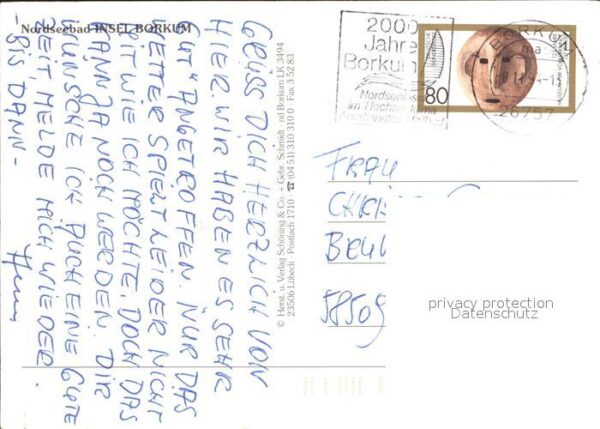 Nordseebad INSEL BORKUM
GRÜSS DICH HERZLICH VON
HIER. WIR HABEN ES SEHR
GUT" ANGETROFFEN. NUR DAS
WETTER SPIELT LEIDER NICHT
MIT WIE ICH MÖCHTE. DOCH DAS
KANN JA NOCH WERDEN. DIR
WÜNSCHE ICH AUCH EINE GUTE
ZEIT, MELDE MICH WIEDER.
-BIS DANN-
© Herst. u. Verlag Schöning & Co. + Gebr. Schmidt - nd Borkum LK 3494
23506 Lübeck · Postfach 1710 · ☎ (04 51) 310 310 0 · Fax 3 52 83
2000
Jahre
Borkum
Nordseeinsel
im Hochseeklima
80
BORKUM
26757
FRAU
58509
privacy protection
Datenschutz